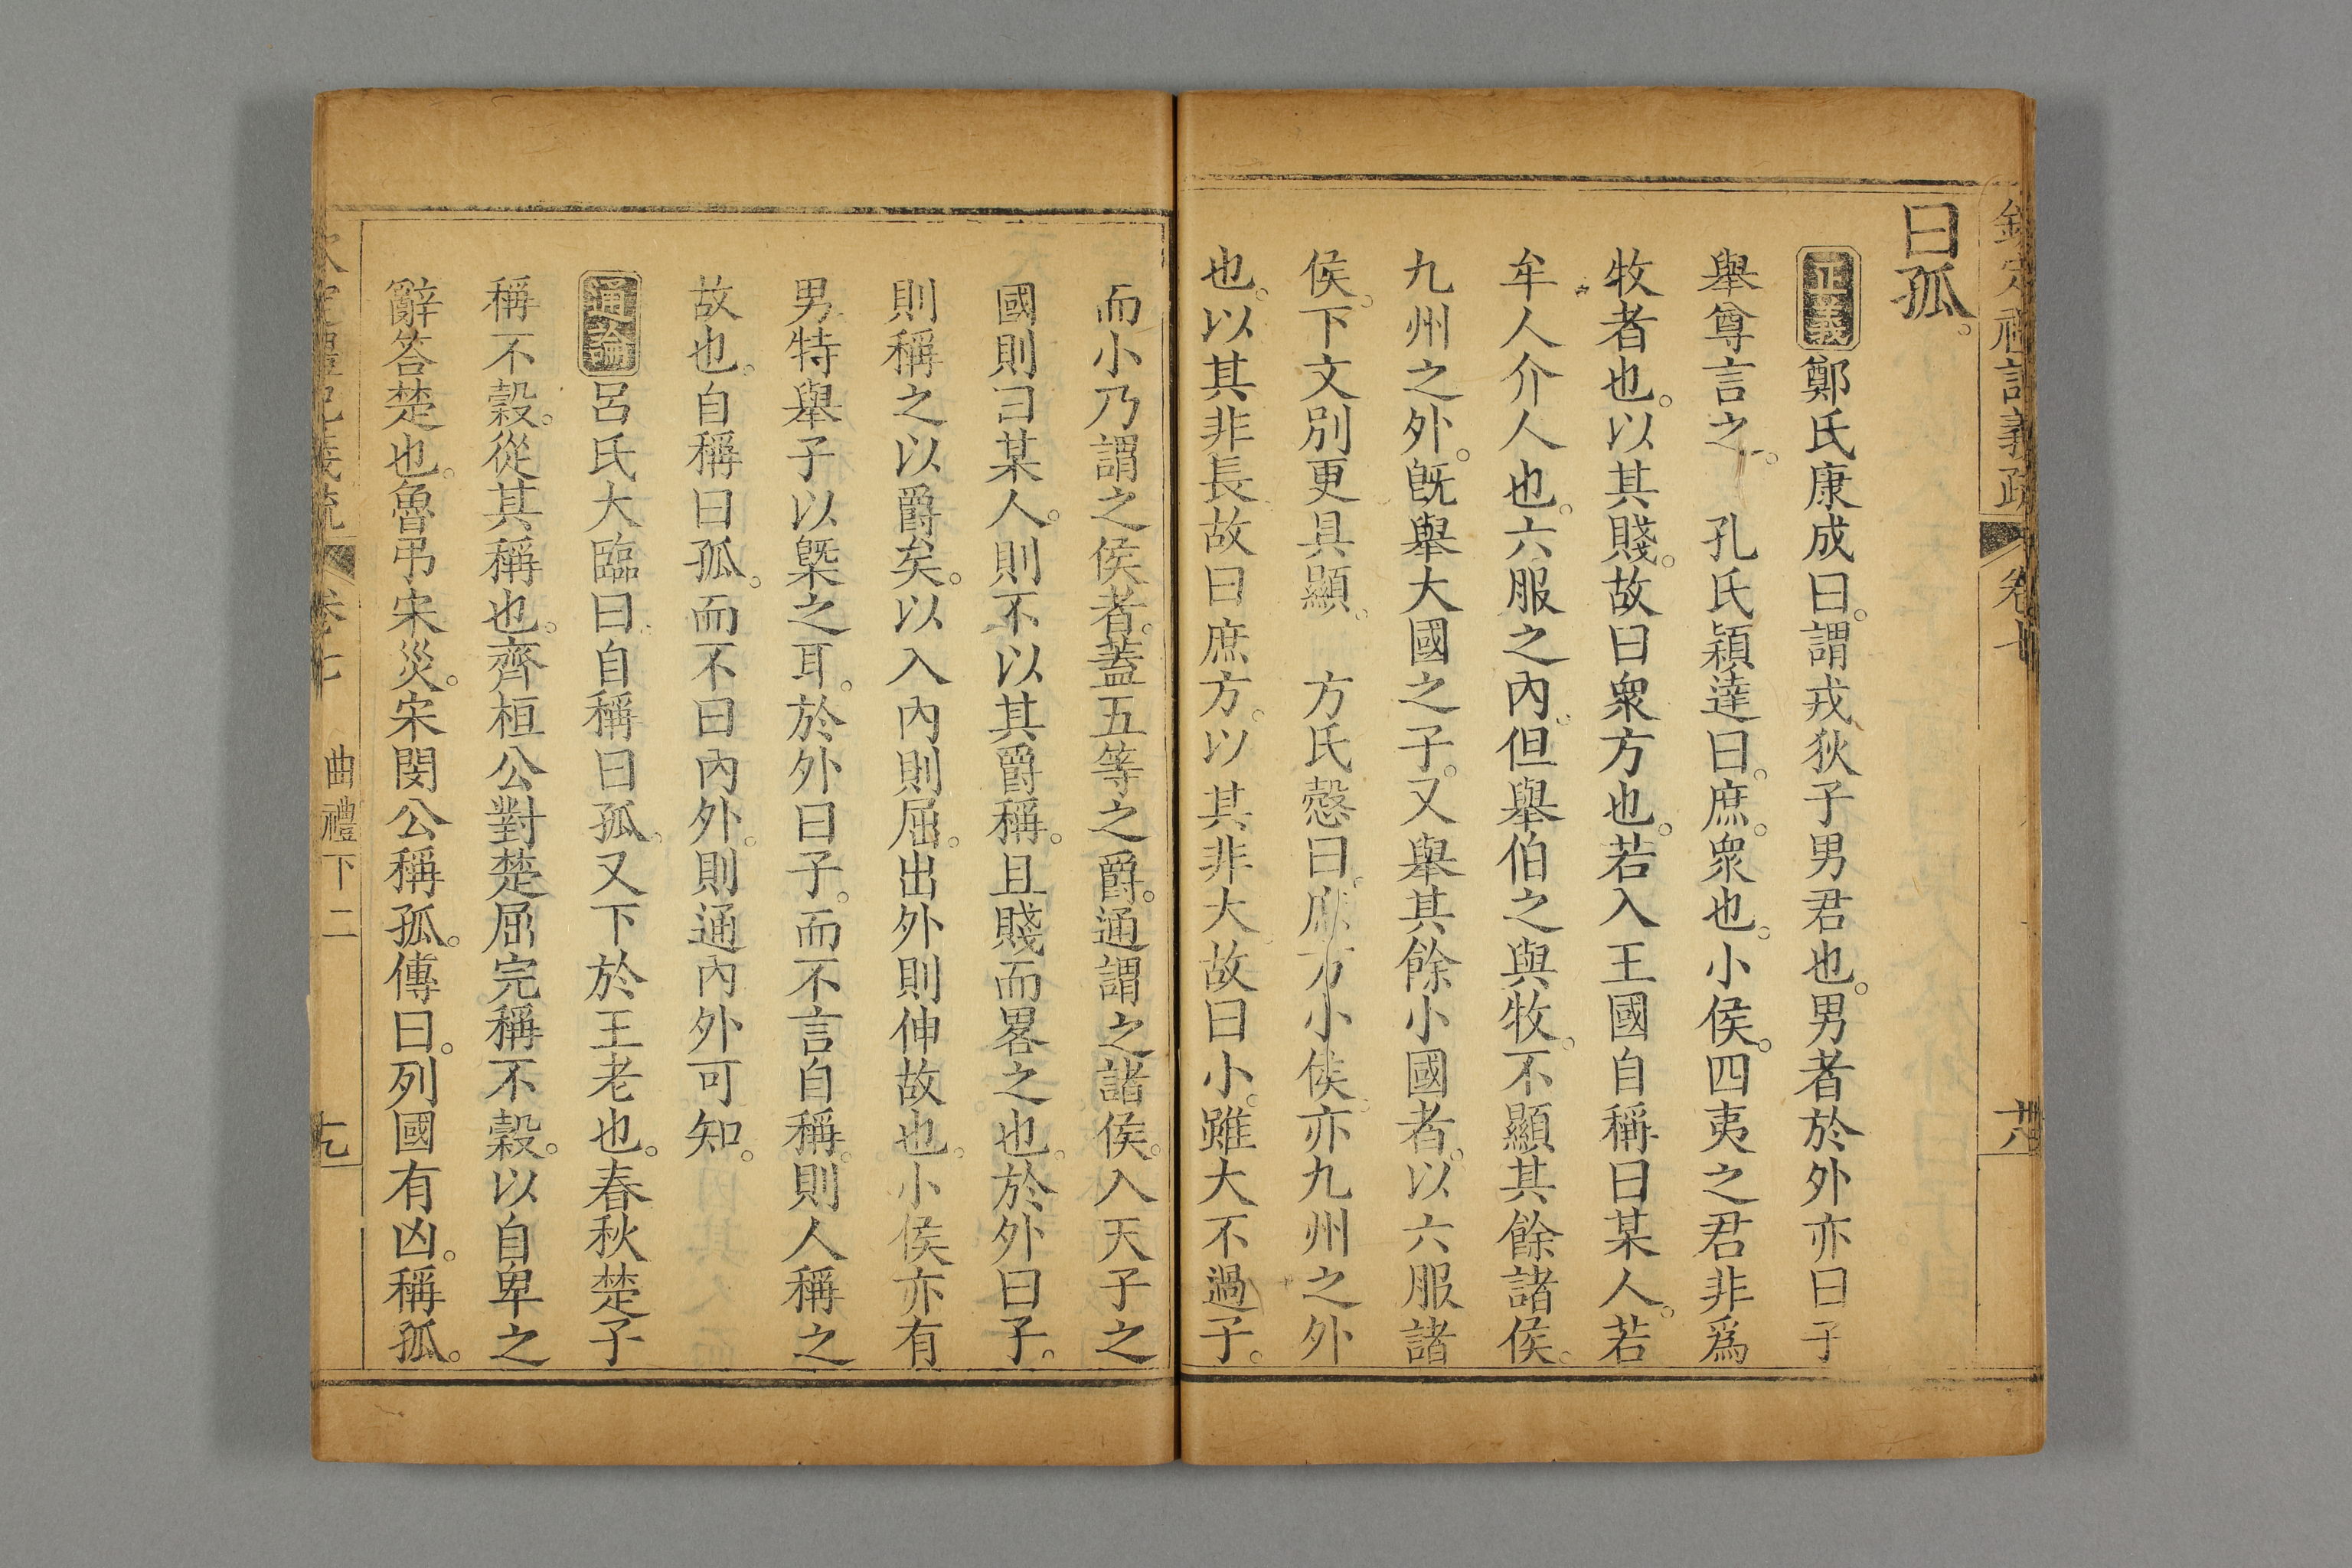 欽定禮記義疏 卷七
曰孤。
正義 鄭氏康成曰。謂戎狄子男君也。男者於外亦曰子
舉尊言之。 孔氏穎達曰。庶。衆也。小侯。四夷之君非爲
牧者也。以其賤。故曰衆方也。若入王國自稱曰某人。若
牟人介人也。六服之內。但舉伯之與牧。不顯其餘諸侯。
九州之外。旣舉大國之子。又舉其餘小國者。以六服諸
侯。下文別更具顯。 方氏慤曰。庶方小侯。亦九州之外
也。以其非長故曰庶方。以其非大故曰小。雖大不過子。
而小乃謂之侯者。蓋五等之爵。通謂之諸侯。入天子之
國則曰某人。則不以其爵稱。且賤而畧之也。於外曰子。
則稱之以爵矣。以入內則屈。出外則伸故也。小侯亦有
男。特舉子以槩之耳。於外曰子。而不言自稱。則人稱之
故也。自稱曰孤。而不曰內外。則通內外可知。
通論 呂氏大臨曰。自稱曰孤。又下於王老也。春秋楚子
稱不穀。從其稱也。齊桓公對楚屈完稱不穀。以自卑之
辭答楚也。魯弔宋災。宋閔公稱孤。傳曰。列國有凶。稱孤。
欽定禮記義疏 卷七 曲禮下二